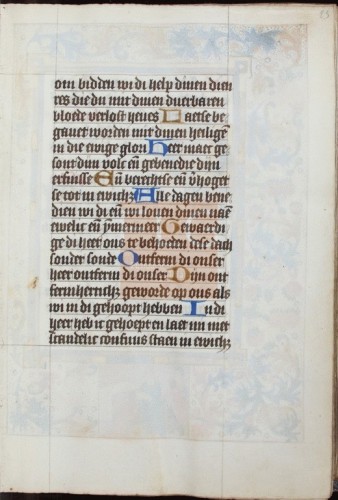 om bidden wi di help dinen dien
res die du mit dinen duerbaren
bloede verlost heues Laetse be
gauet worden mit dinen heiligē
in die ewige glori Heer maec ge
sont dijn volc eñ gebenedie dijn
erfnisse Eñ berechtse eñ vhoget
se tot in ewich; Alle dagen bene
dien wi di eñ wi louen dinen naē
ewelic eñ ymermeer Gewaerdi
ge di heer ons te behoeden dese dach
sonder sonde Ontferm di onser
heer ontferm di onser Dijn ont
fermherticht; geworde op ons als
wi in di gehoopt hebben In di
heer heb ic gehoept en laet mi niet
scandelic confuus staen in ewich;